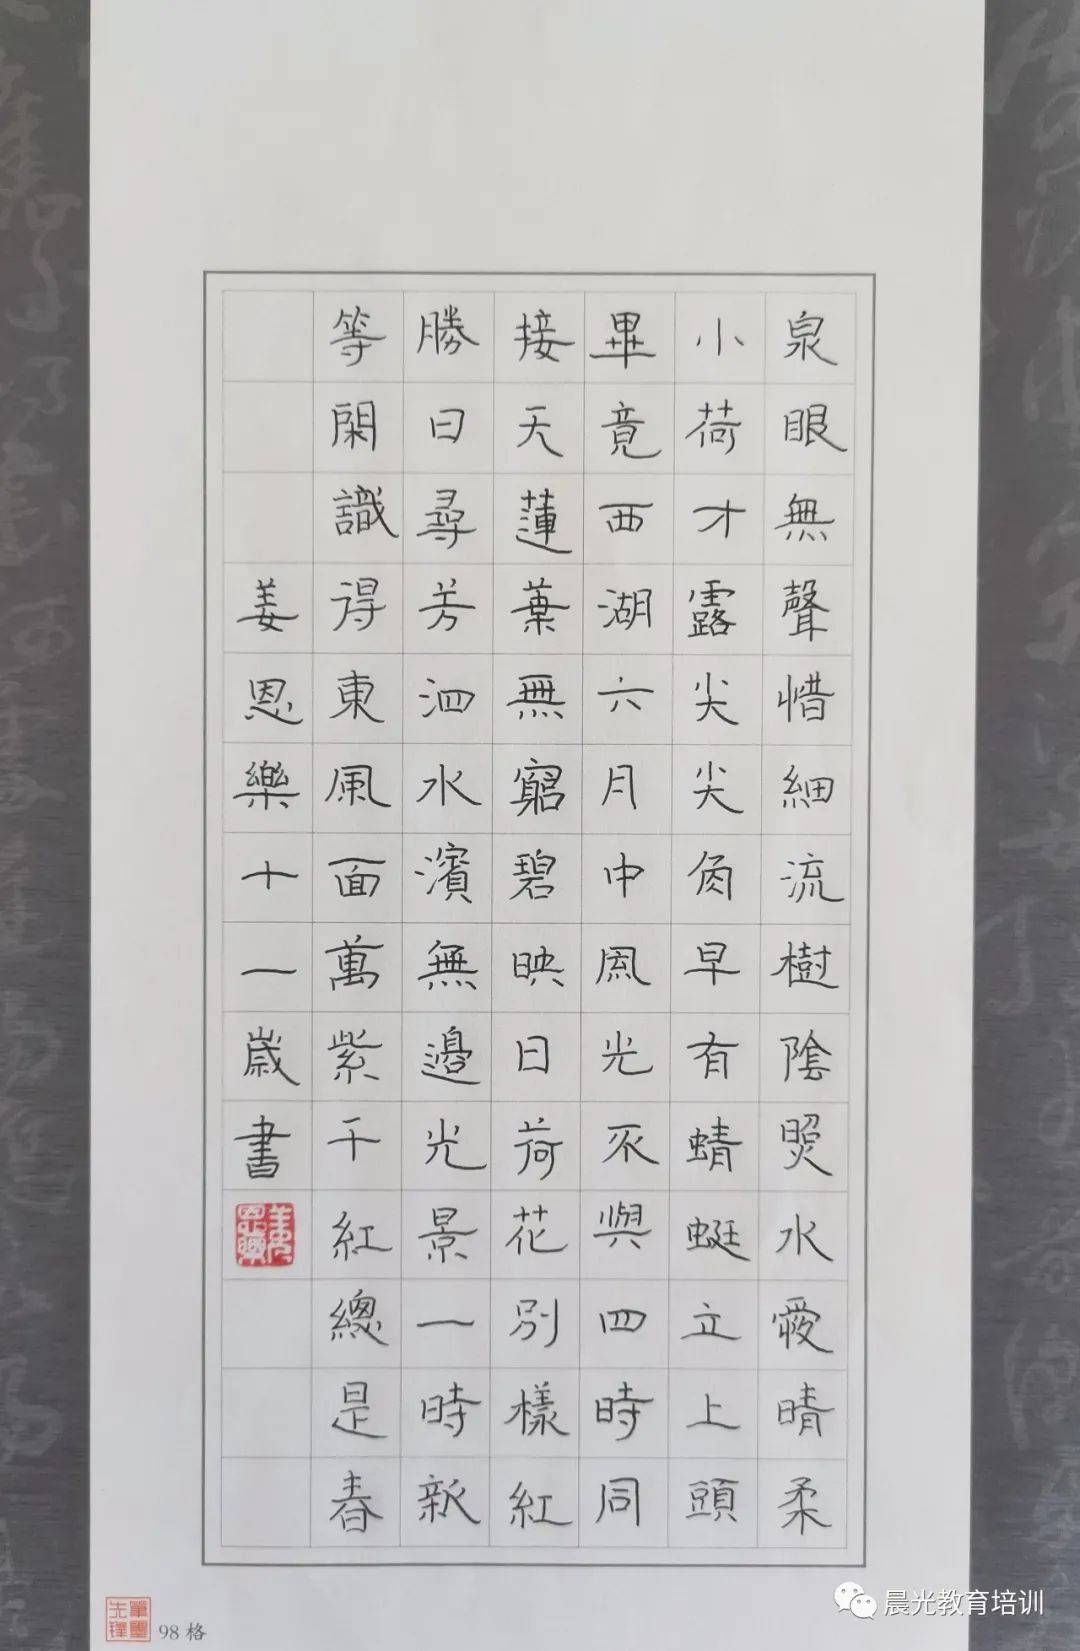 泉眼無聲惜細流樹陰照水愛晴柔
小荷才露尖尖角早有蜻蜓立上頭
畢竟西湖六月中風光不與四時同
接天蓮葉無窮碧映日荷花別樣紅
勝日尋芳泗水濱無邊光景一時新
等閑識得東風面萬紫千紅總是春
姜恩樂十一歲書
姜恩樂
筆墨先鋒
98格
晨光教育培训